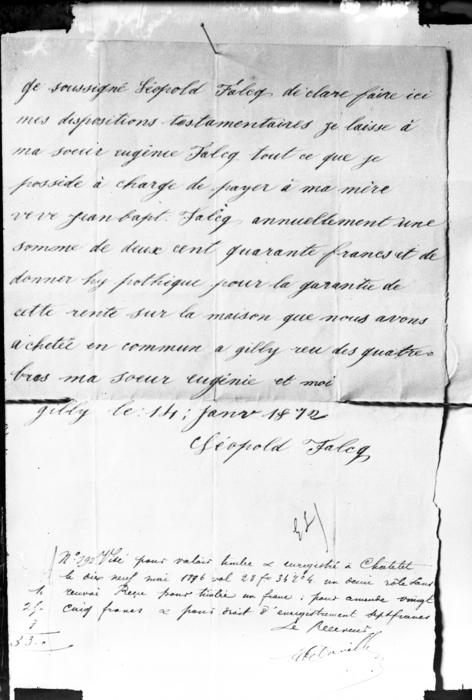 je soussigné Léopold Falcq déclare faire ici
mes dispositions testamentaires je laisse à
ma soeur eugénie Falcq tout ce que je
posside à charge de payer à ma mère
veve jean bapt. Falcq annuellement une
somme de deux cent quarante francs et de
donner hypothique pour la garantie de
cette rente sur la maison que nous avons
achetée en commun a gilly reu des quatre-
bras ma soeur eugénie et moi
gilly le: 14: janvr 1872
Léopold Falcq
N° 292 Visé pour valoir timbre & enregistré à Chatelet
le dix neuf mai 1896 vol 28 f° 34 un demi rôle sans
renvoi Reçu pour timbre un franc; pour amende vingt
cinq francs & pour droit d'enregistrement sept francs
1
25
7
33
Le Receveur